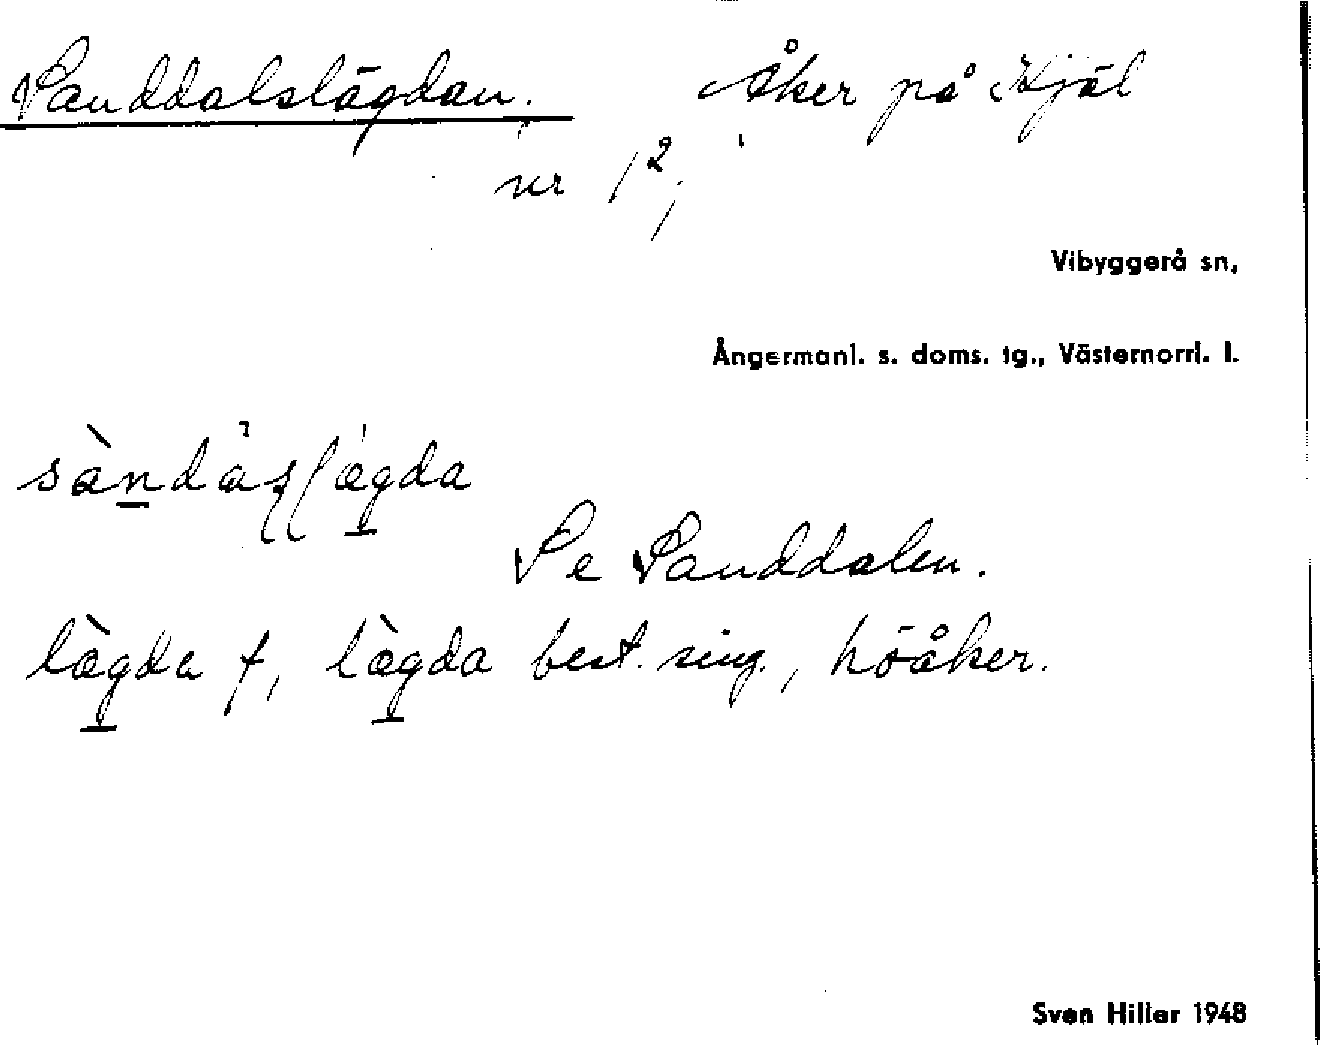 Sanddalslägdan. Åker på Kjäl
nr 1²,
Vibyggerå sn,
Ångermanl. s. doms. tg., Västernorrl. l.
Se Sanddalen.
lägda f, lägda best. sing., höåker.
Sven Hiller 1948